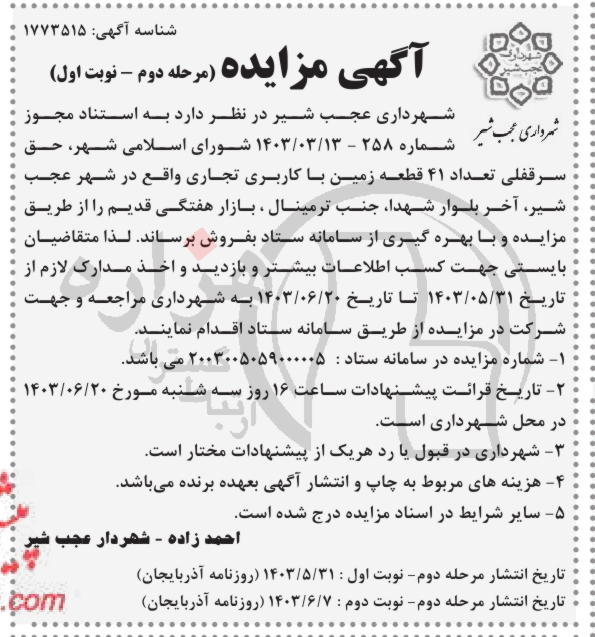 شناسه آگهی: ۱۷۷۳۵۱۵
آگهی مزایده (مرحله دوم – نوبت اول)
شهرداری
عجب شیر
شهرداری عجب شیر
شهرداری عجب شیر در نظر دارد به استناد مجوز
شماره ۲۵۸ - ۱۴۰۳/۰۳/۱۳ شورای اسلامی شهر، حق
سرقفلی تعداد ۴۱ قطعه زمین با کاربری تجاری واقع در شهر عجب
شیر، آخر بلوار شهدا، جنب ترمینال ، بازار هفتگی قدیم را از طریق
مزایده و با بهره گیری از سامانه ستاد بفروش برساند. لذا متقاضیان
بایستی جهت کسب اطلاعات بیشتر و بازدید و اخذ مدارک لازم از
تاریخ ۱۴۰۳/۰۵/۳۱ تا تاریخ ۱۴۰۳/۰۶/۲۰ به شهرداری مراجعه و جهت
شرکت در مزایده از طریق سامانه ستاد اقدام نمایند.
۱- شماره مزایده در سامانه ستاد : ۲۰۰۳۰۰۵۰۵۹۰۰۰۰۰۵ می باشد.
۲- تاریخ قرائت پیشنهادات ساعت ۱۶ روز سه شنبه مورخ ۱۴۰۳/۰۶/۲۰
در محل شهرداری است.
۳- شهرداری در قبول یا رد هریک از پیشنهادات مختار است.
۴- هزینه های مربوط به چاپ و انتشار آگهی بعهده برنده می‌باشد.
۵- سایر شرایط در اسناد مزایده درج شده است.
احمد زاده - شهردار عجب شیر
تاریخ انتشار مرحله دوم- نوبت اول : ۱۴۰۳/۵/۳۱ (روزنامه آذربایجان)
تاریخ انتشار مرحله دوم- نوبت دوم : ۱۴۰۳/۶/۷ (روزنامه آذربایجان)
هزاره
.com